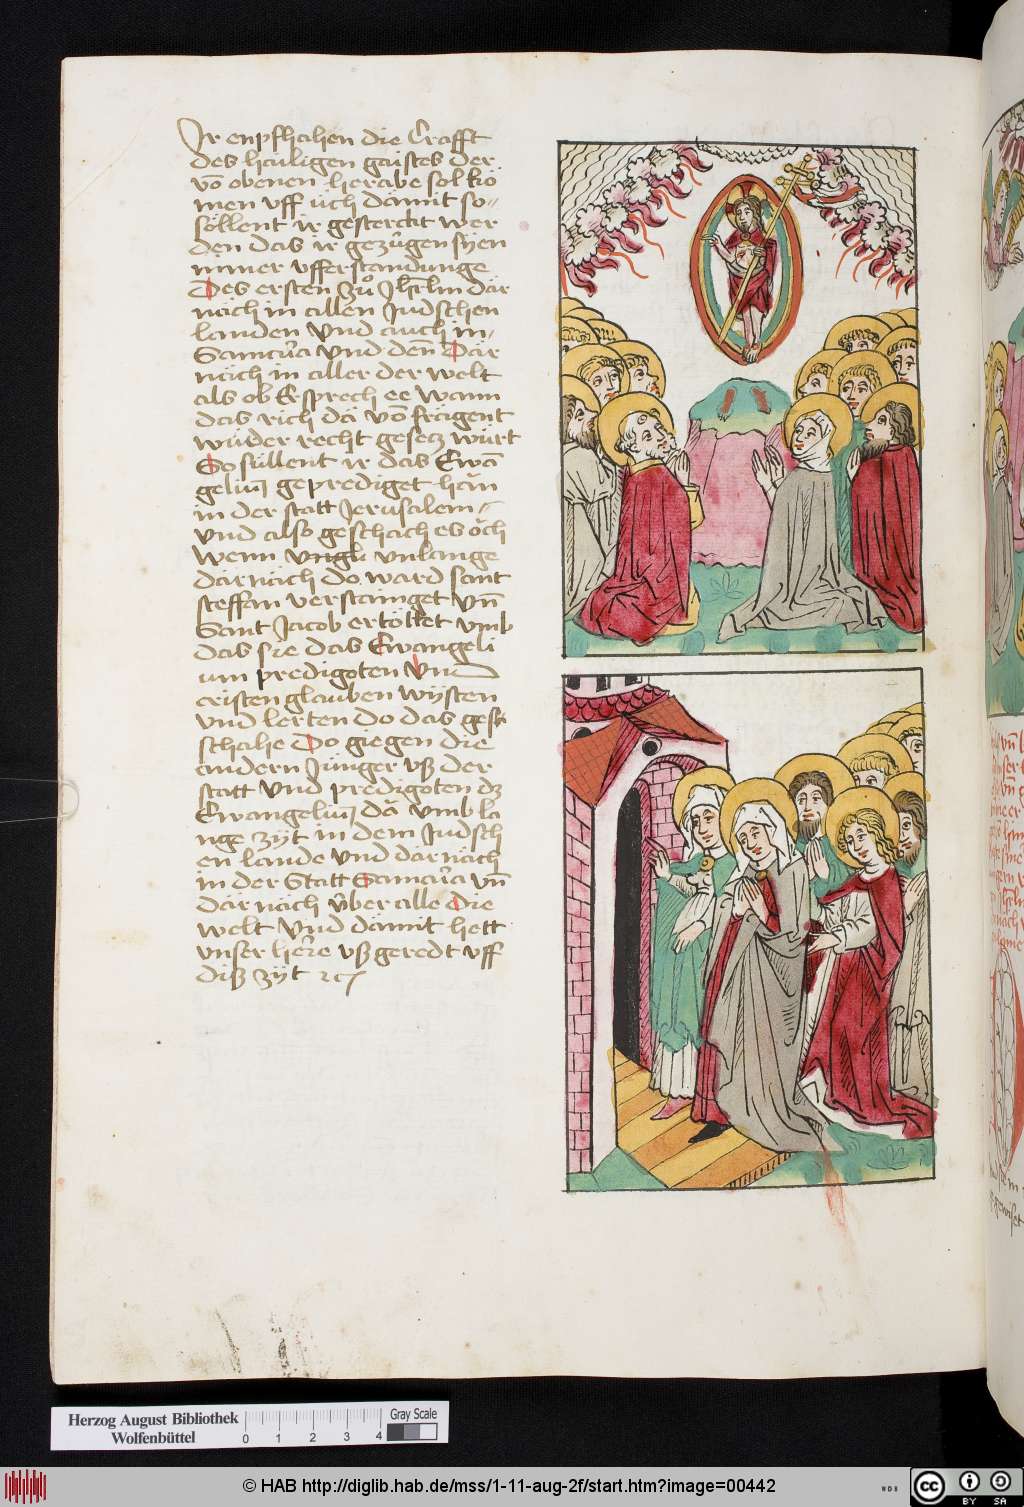 Ir enpfhahen die Crafft
des hailigen gaistes der
vō obenen herabe sol kō
men vff üch damit so-
söllent ir gesterckt wer
den das ir gezügen syen
miner vfferstandunge
Des ersten zů Jhrlm dar
näch in allen Judschen
landen Vnd auch in-
Samaria Vnd den Där
näch in aller der welt
als ob Er sprech ee wann
das rich dä võ frägent
wider recht gesetz würt
So süllent ir das Ewā
geliū geprediget han
in der statt Jerusalem-
Vnd also geschach es öch
Wenn vngh vnlange
där näch do ward sant
steffan verstainget Vn̄
Sant Jacob ertöttet vmb
das sie das Ewangeli
um predigoten Vnd
cristen glauben wysten
vnd lerten do das gesch
schahe Do giegen die
andern Jünger vß der
statt Vnd predigoten dz
Ewangeliū dä vmb la
nge zyt in dem Judsch
en lande Vnd där näch
in der Statt Samaria vn̄
där näch über alle die
welt Vnd dämit hett
vnser herre vß geredt vff
diß zyt ⁊c
Herzog August Bibliothek
Wolfenbüttel
0 1 2 3 4
Gray Scale
© HAB http://diglib.hab.de/mss/1-11-aug-2f/start.htm?image=00442
WDB
cc BY SA